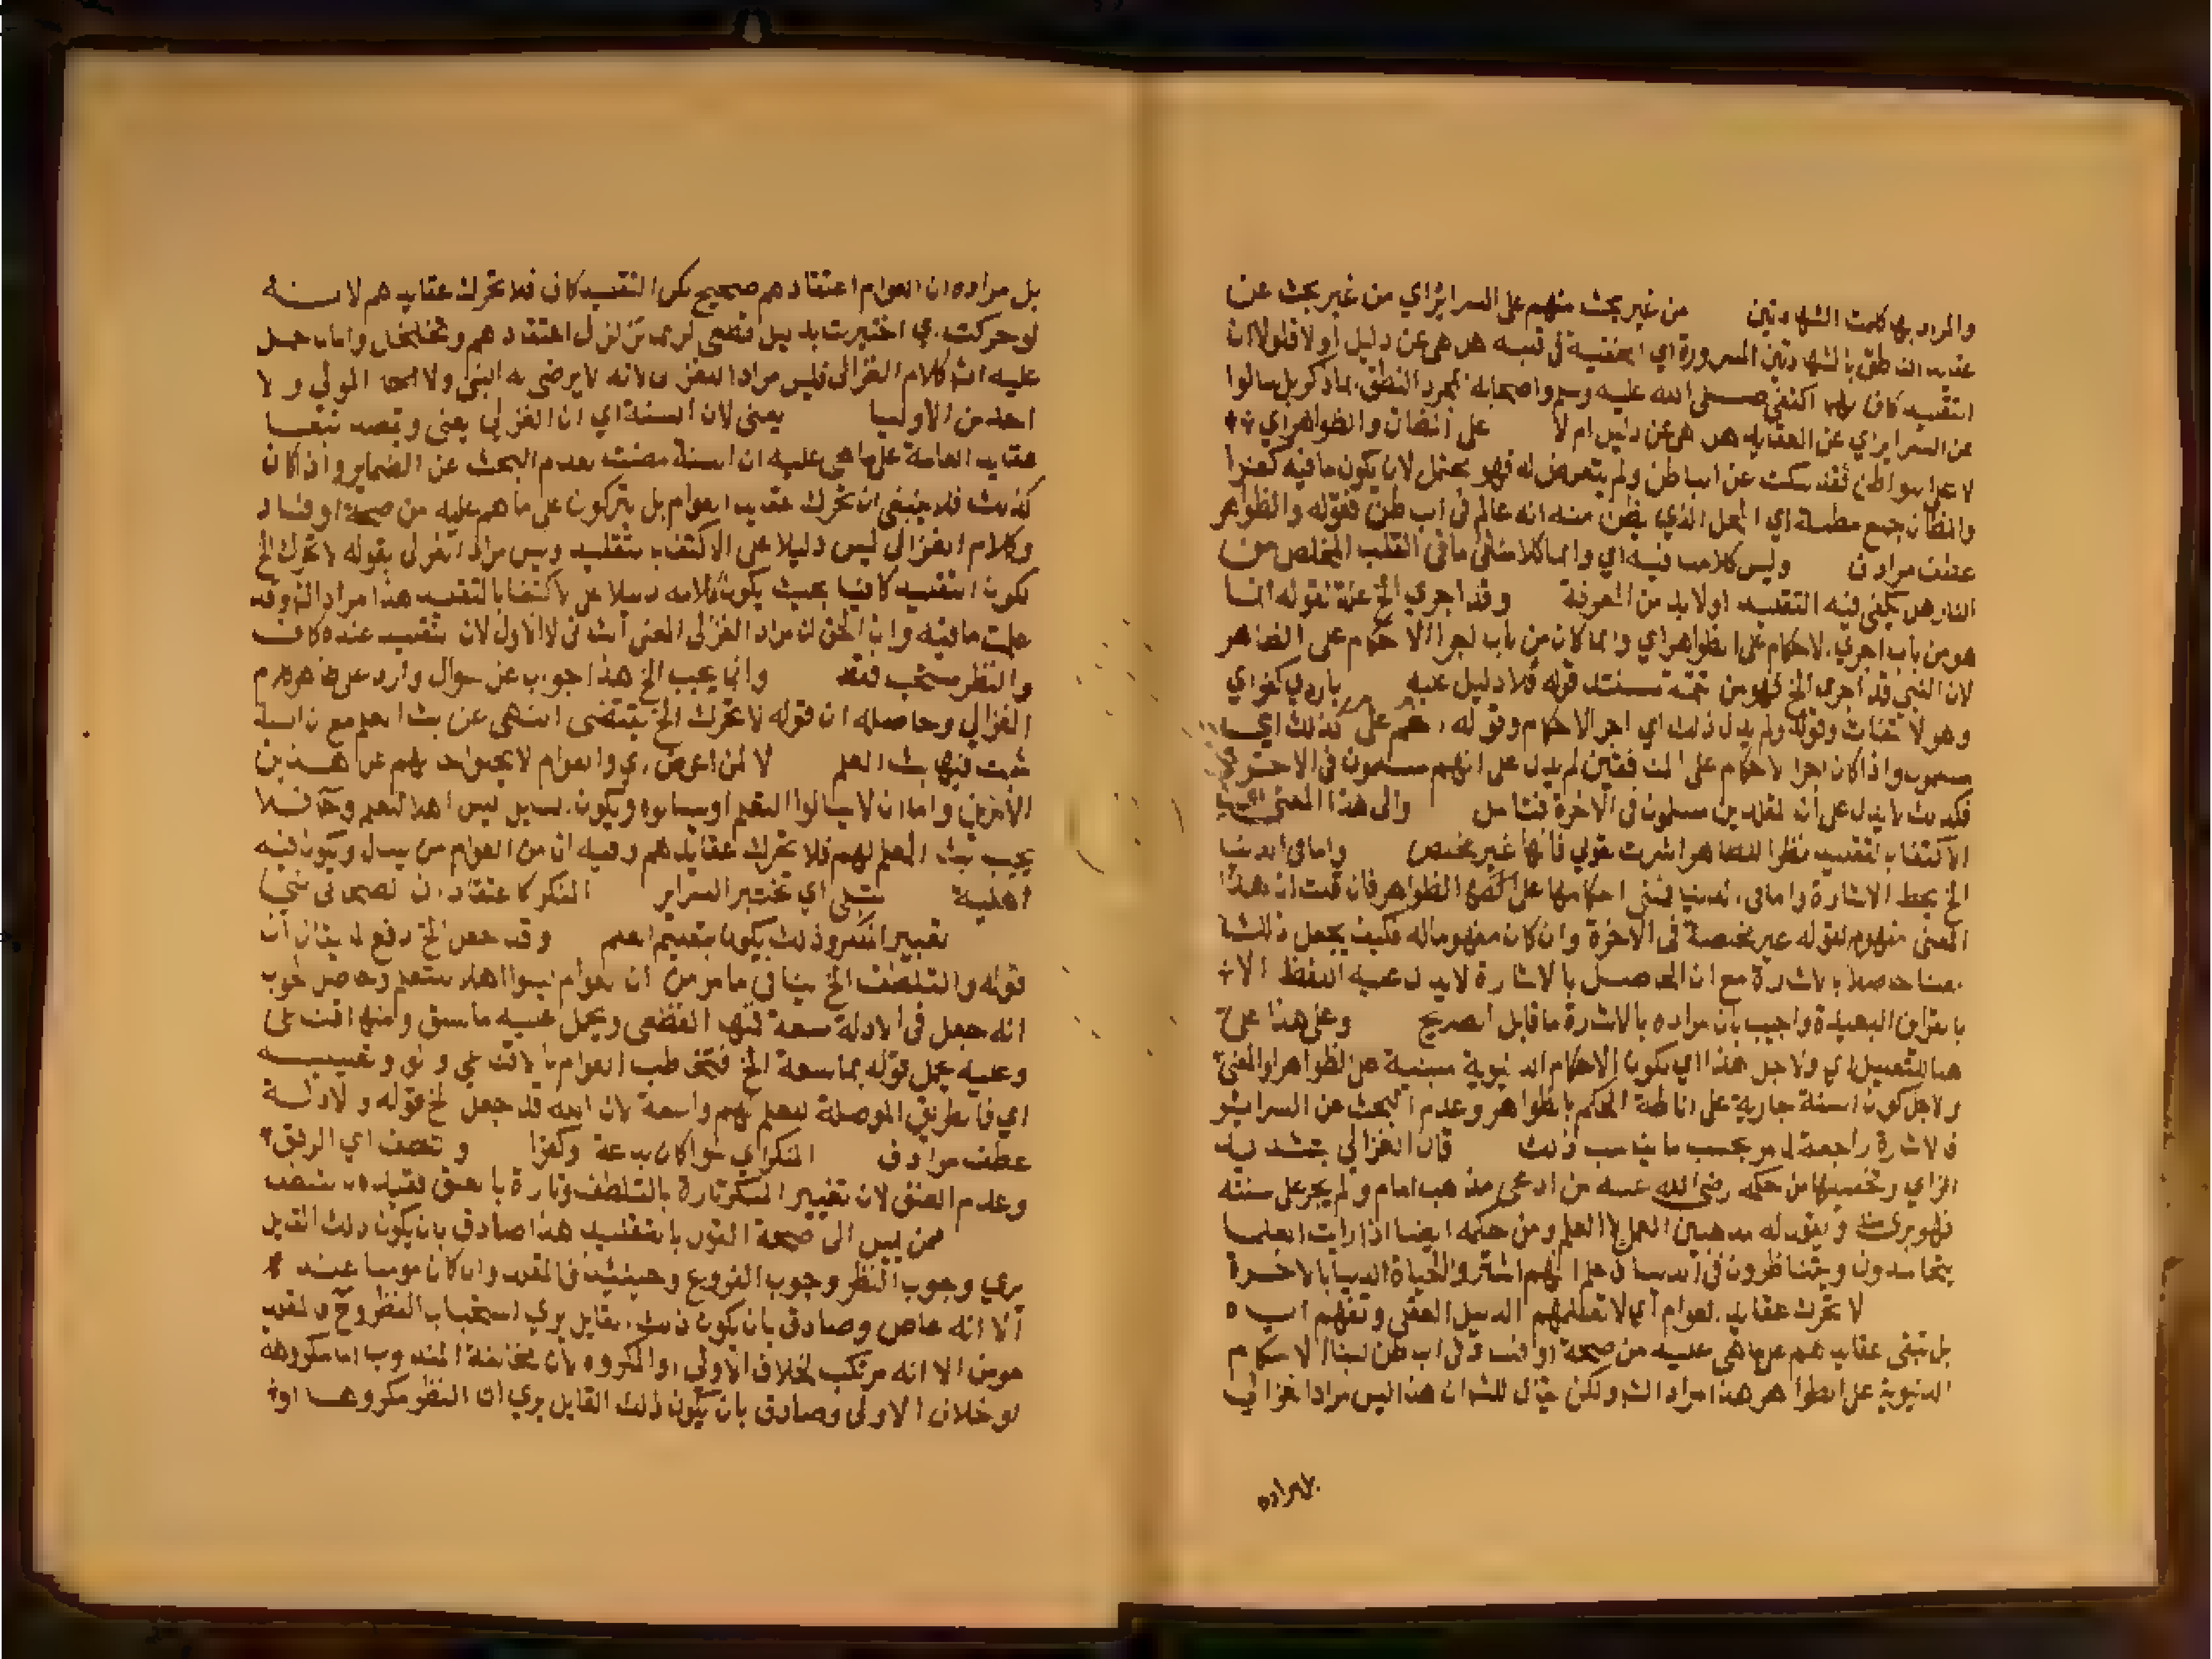 والمراد بها كلمت الشهادتين من غير بحث منهم على السراير اي من غير بحث عن
عقيدة الناطق بالشهادتين المسرورة اي المخفية في قلبه هل هي عن دليل أو لا فلولا ان
التقليد كاف لما اكتفى صلى الله عليه وسلم واصحابه بمجرد النطق بما ذكر بل سالوا
عن السراير اي عن العقايد هل هي عن دليل ام لا على المظان والظواهر اي
لا على البواطن فقد سكت عن الباطن ولم يتعرض له فهو يحتمل لان يكون ما فيه كفرا
والمظان جمع مظنة اي المحل الذي يظن منه انه عالم في الباطن فقوله والظواهر
عطف مرادف وليس كلامنا فيه اي وانما كلامنا في ما في القلب المخلص من
النار هل يكفي فيه التقليد او لا بد من المعرفة وقد اجري الخ علة لقوله انما
هو من باب اجري الاحكام على الظواهر اي وانما كان من باب اجرا الاحكام على الظاهر
لان النبي قد اجري الخ فهو من تتمة سند قوله فلا دليل فيه
وهو لا وقوله ولم يدل ذلك اي اجرا الاحكام وقوله كذلك اي
واذا كان اجرا الاحكام على المنافقين لم يدل على انهم مسلمون في الاخرة
فكذلك لا يدل على أن المقلدين مسلمون في الاخرة فتامل والى هذا المعنى
الاكتفا بالتقليد نظرا للظاهر اشرت بقولي فانها غير مختص واما في الدنيا
الخ محط الاشارة واما في الدنيا فتبنى احكامها على الظواهر فان قلت ان هذا
المعنى مفهوم لقوله غير مختصة في الاخرة وان كان مفهوما له فكيف يجعل ذلك
حاصلا بالاشارة مع ان الحاصل بالاشارة لا يدل عليه اللفظ الا
بالقراين البعيدة واجيب بان مراده بالاشارة ما قابل التصريح وعلى هذا على
هنا للتعليل اي ولاجل هذا اي يكون الاحكام الدنيوية مبنية على الظواهر والمعنى
ولاجل كون السنة جارية على اناطة الحكم بالظواهر وعدم البحث عن السراير
فالاشارة راجعة لامر بحسب ما يناسب ذلك قال الغزالي
الراي ومن حكمه رضي الله عنه من ادعى مذهب امام ولم يجر على سنته
فهو بري منه ويقول له مذهبي العمل لا العلم ومن حكمه ايضا اذا رايت العلما
يتحاسدون ويتناظرون في الدنيا فاعلم انهم اشتروا الحياة الدنيا بالاخرة
لا تحرك عقايد العوام اي لا تعلمهم الدليل العقلي وتفهم
بل تبقى عقايدهم على ما هي عليه من صحة او فساد في الباطن لبنا الاحكام
الدنيوية على الظواهر هذا مراد الش ولكن يقال للش ان هذا ليس مراد الغزالي
بل مراده
بل مراده ان العوام اعتقادهم صحيح لكن التقليد كاف فلا تحرك عقايدهم لانه
لو حركت اي اختبرت بدليل قطعي لربما تزلزل اعتقادهم وتخلخل واما ما حمل
عليه الش كلام الغزالي فليس مراد الغزالي لانه لا يرضى به النبي ولا الله المولى ولا
احد من الاوليا يعني لان السنة اي ان الغزالي يعني ويقصد تبقى
عقايد العامة على ما هي عليه ان السنة مضت بعدم البحث عن الضماير واذا كان
كذلك فلا ينبغي ان تحرك عقايد العوام بل يتركون على ما هم عليه من صحة او فساد
وكلام الغزالي ليس دليلا على الاكتفا بالتقليد وليس مراد الغزالي بقوله لا تحرك الخ
بكون التقليد كافيا بحيث يكون كلامه دليلا على الاكتفا بالتقليد هذا مراد الش وقد
علمت ما فيه وان الحق ان مراد الغزالي المعنى الثاني لا الاول لان التقليد عنده كاف
والنظر مستحب فقط وانما يجب الخ هذا جواب عن سوال وارد على ظاهر كلام
الغزالي وحاصله ان قوله لا تحرك الخ يقتضي النهي عن بث العلم مع ان السنة
ثبت فيها بث العلم لا لمن اعرض اي والعوام لا يخلوا حالهم عن هذين
الامرين واما ان لا يسالوا التعلم او يسالوه ويكون السايل ليس اهلا للعلم وح فلا
يجب بث العلم لهم فلا تحرك عقايدهم وفيه ان من العوام من يسال ويكون فيه
اهلية تبتلى اي تختبر السراير المنكر كاعتقاد ان
تغيير المنكر وذلك يكون بتعليم العلم وقد جعل الخ دفع لما يقال أن
قوله والتلطف الخ ينافي ما مر من ان العوام ليسوا اهلا للتعلم وحاصل الجواب
انه جعل في الادلة سعة فمنها القطعي ويحمل عليه ما سبق ومنها اقناعي
وعليه يحمل قوله بما سعة الخ فتخاطب العوام بالاقناعي
اي فالطريق الموصلة للعلم لهم واسعة لان الله قد جعل الخ قوله والادلة
عطف مرادف المنكر اي سوا كان بدعة وكفرا وتلطف اي الرفق
وعدم العنف لان تغيير المنكر تارة بالتلطف وتارة بالعنف
ممن يميل الى صحة القول بالتقليد هذا صادق بان يكون ذلك القايل
يري وجوب النظر وجوب الفروع وحينئذ فالمقلد وان كان مومنا عنده
الا انه عاص وصادق بان يكون ذلك القايل يري استحباب النظر وح فالمقلد
مومن الا انه مرتكب لخلاف الاولى او المكروه لان مخالفة المندوب اما مكروهة
او خلاف الاولى وصادق بان يكون ذلك القايل يري ان النظر مكروها او